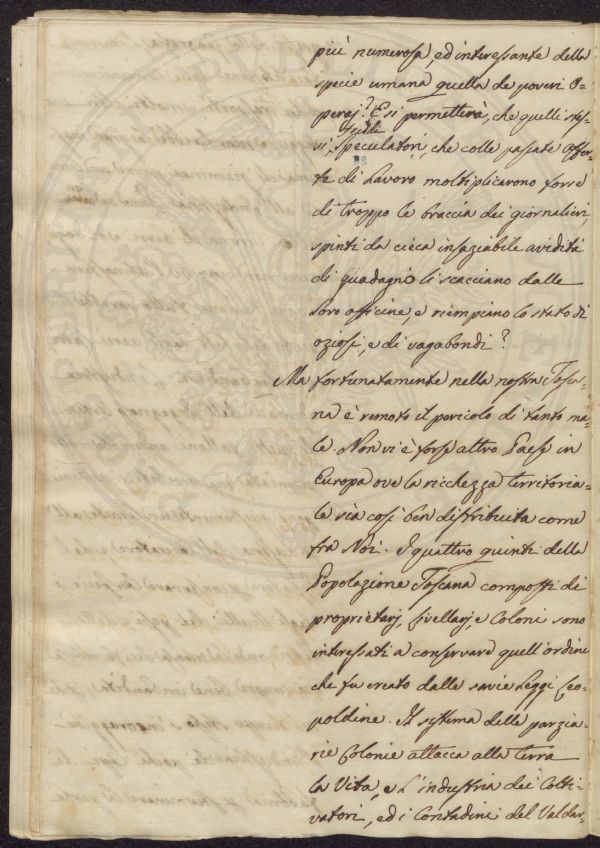 più numerosa, ed interessante della
specie umana quella de poveri O-
peraj? E si permetterà, che quelli stes-
si, speculatori, che colle passate Offer-
te di Lavoro moltiplicarono forse
di troppo le braccia dei giornalieri,
spinti da cieca insaziabile avidità
di guadagno li scacciano dalle
loro officine, e riempiano lo stato di
oziosi, e di vagabondi?
Ma fortunatamente nella nostra Tosca-
na è remoto il pericolo di tanto ma-
le. Non vi è forse altro Paese in
Europa ove la ricchezza territoria-
le sia così ben distribuita come
fra Noi. I quattro quinti della
Popolazione Toscana composti di
proprietarj, Livellarj, e Coloni sono
interessati a conservare quell'ordine
che fu creato dalle savie Leggi Leo-
poldine. Il sistema delle parzia-
rie Colonie attacca alla terra
la Vita, e l'industria dei Colti-
vatori, ed i Contadini del Valdar-